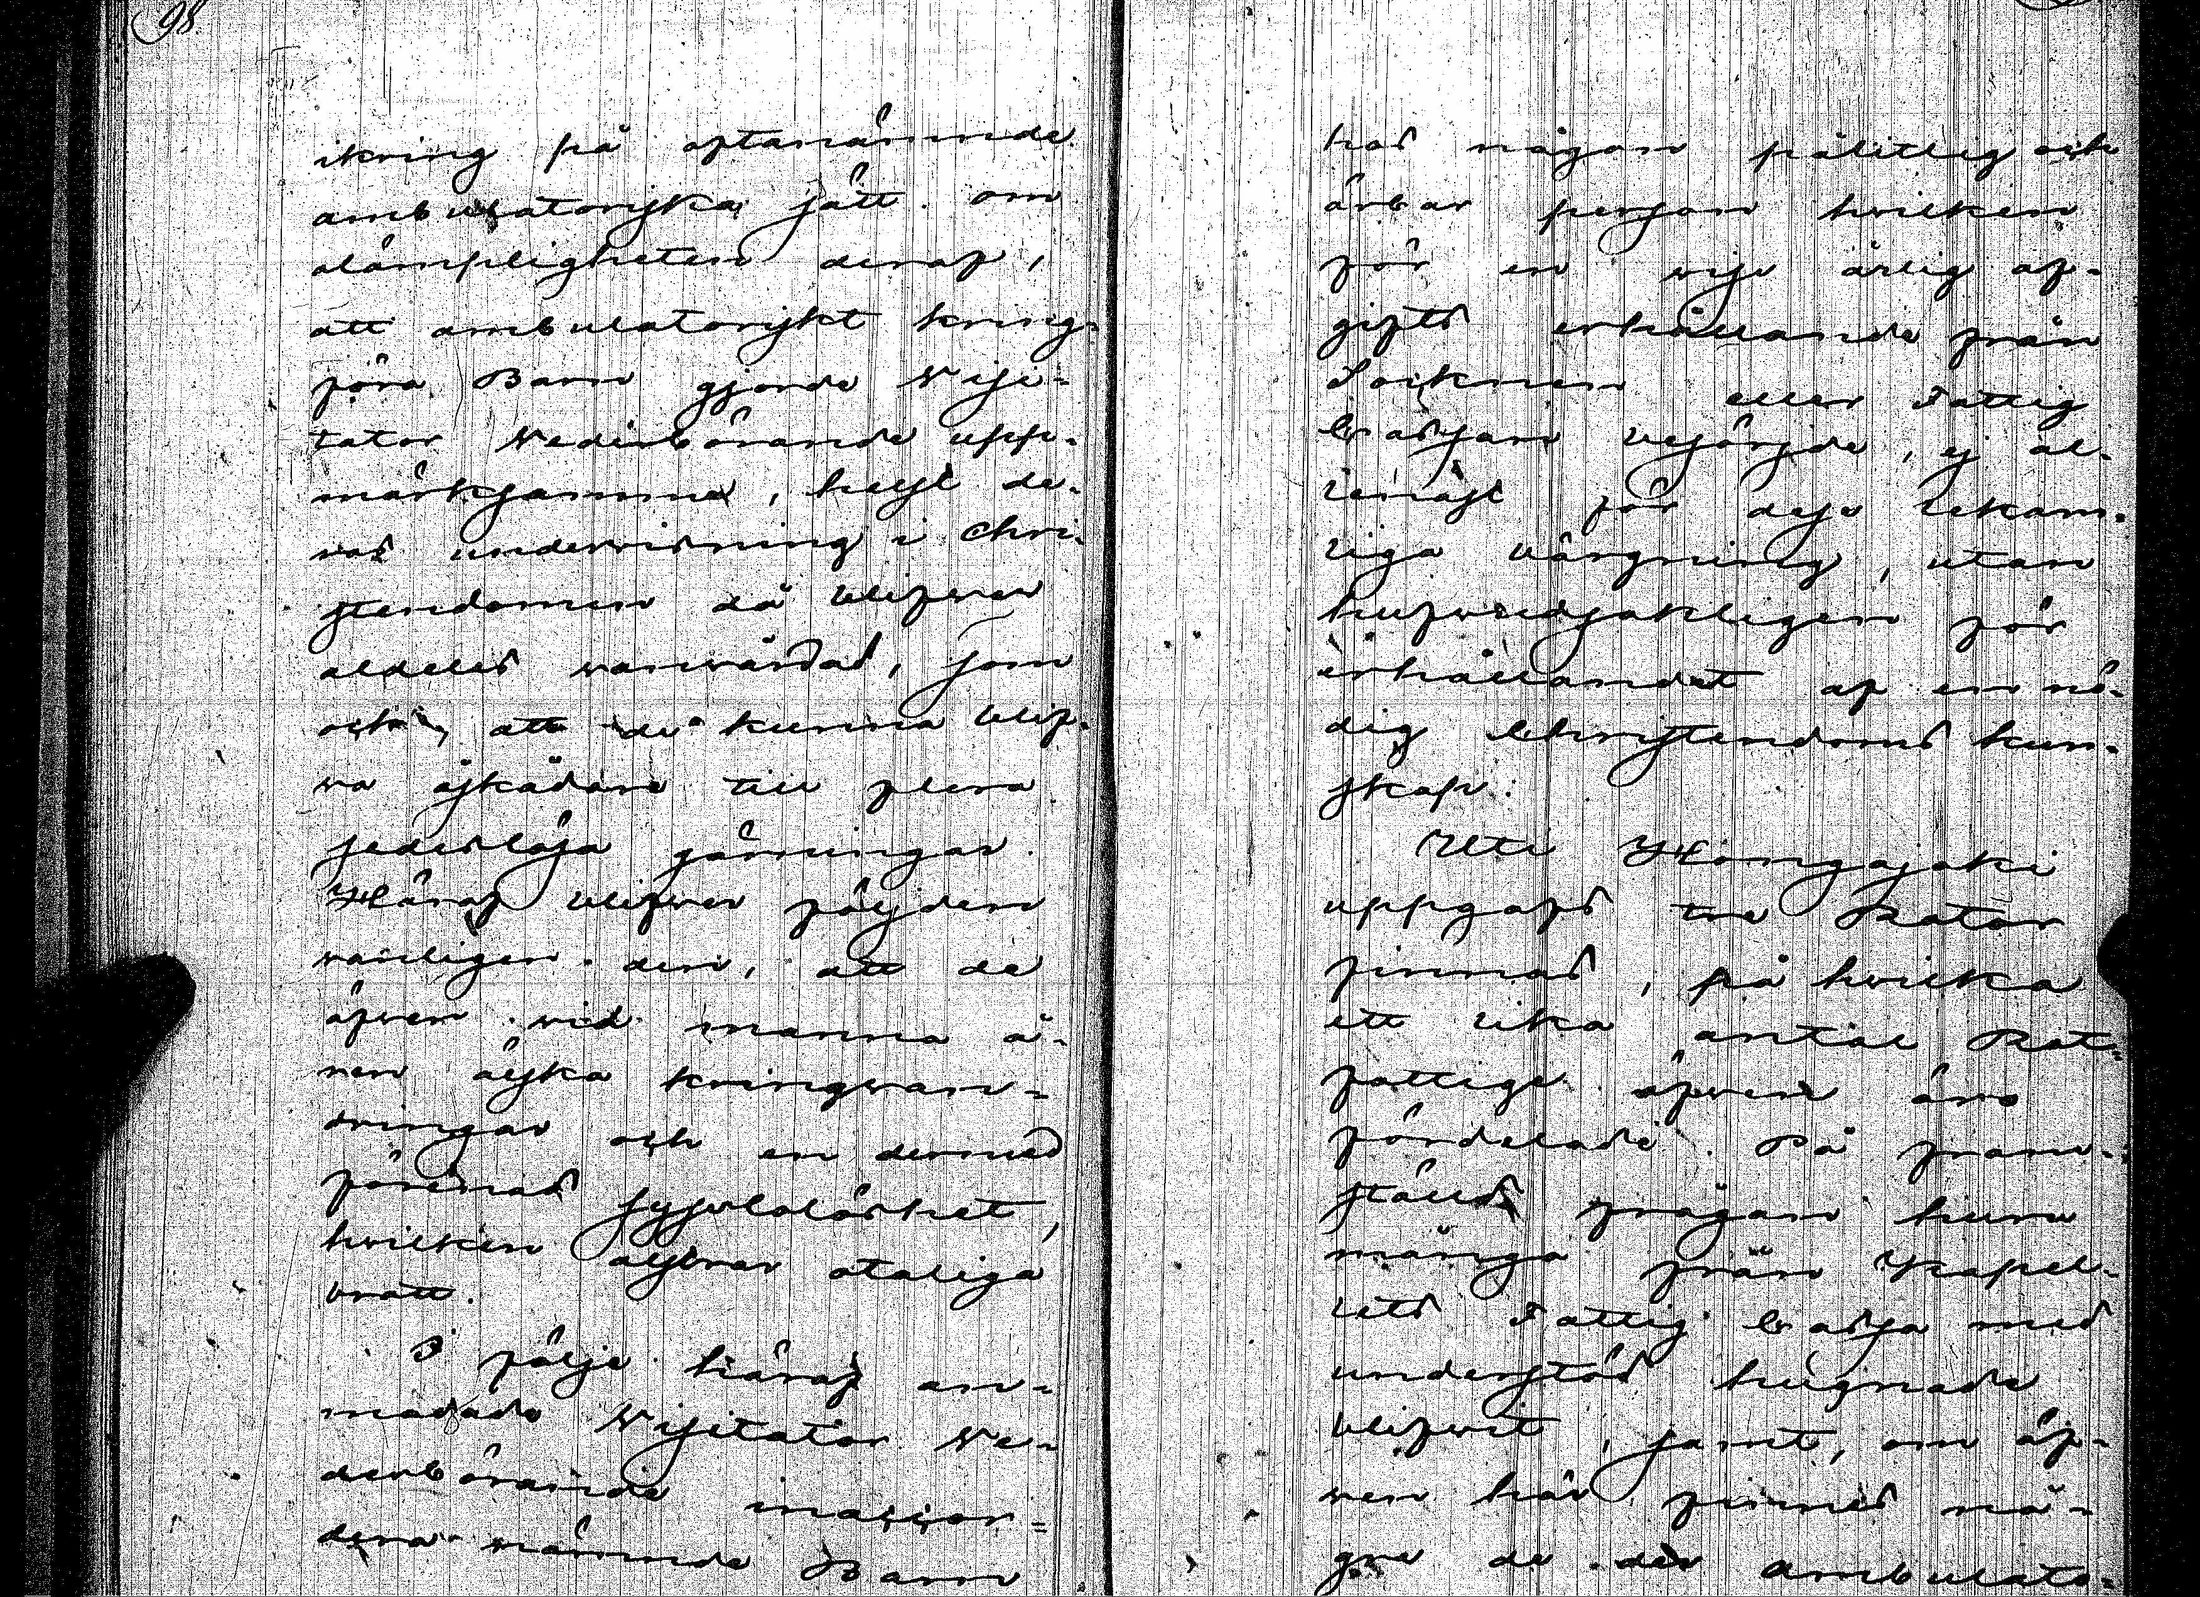 98.
ikring på oftanämnde
ambulatoriska sätt. om
olämpligheten deraf,
att ambulatoriskt kring-
föra Barn gjorde Visi-
tator Vederbörande upp-
märksamma, helst de-
ras undervisning i Chri-
stendomen då blifver
aldeles vanvårdad, som
ock, att de kunna blif-
va åskådare till flera
sedeslösa gärningar.
Häraf blifver följden
vanligen den, att de
äfven vid manna å-
ren älska kringvan-
dringar och en dermed
förenad sysslolöshet,
hvilken alstrar otaliga
brott.
I följe häraf an-
modade Visitator Ve-
derbörande inaccor-
dera nämnde Barn
hos någon pålitlig och
ärbar person hvilken
för en viss årlig af-
gifts erhållande från
Socknen eller Fattig
Cassan besörjde, ej al-
lenast för dess lekam-
liga bärgning, utan
hufvudsakligen för
erhållandet af en nö-
dig Christendoms kun-
skap.
Uti Hongajoki
uppgafs tre Rotar
finnas, på hvilka
ett lika antal Rot-
fattige äfven äro
fördelade. På fram-
ställd frågan huru
många från Kapel-
lets Fattig Cassa med
understöd hugnade
blifvit, samt, om äf-
ven här finnes nå-
gre de der ambulato-